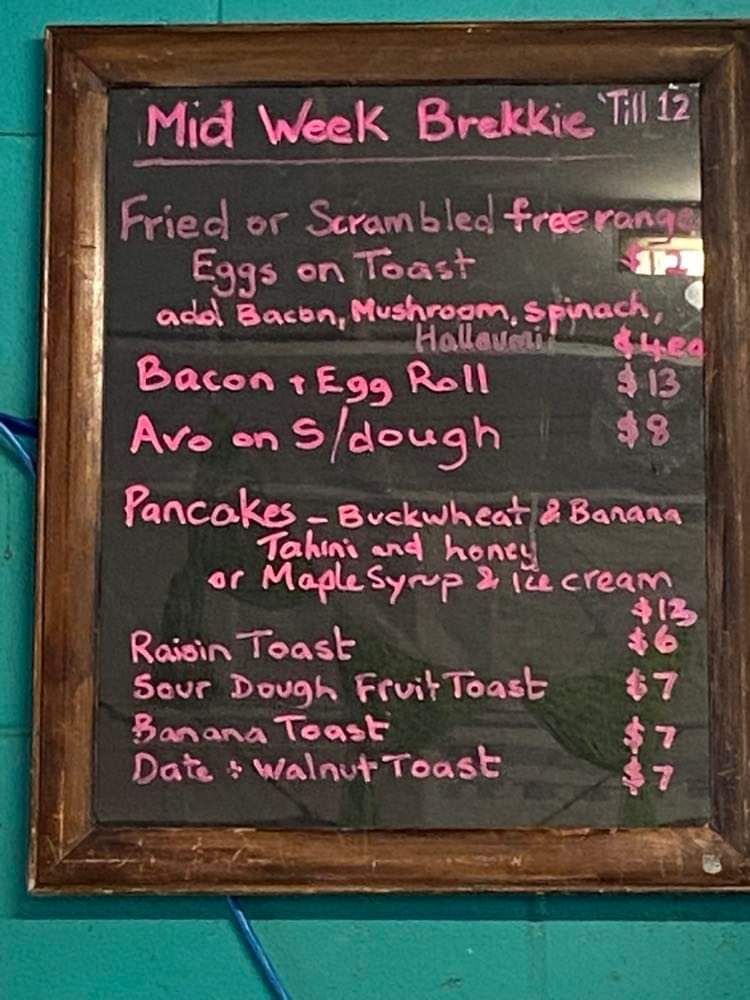 Mid Week Brekkie 'Till 12
Fried or Scrambled free range
Eggs on Toast $12
add Bacon, Mushroom, Spinach,
Halloumi $4ea
Bacon + Egg Roll $13
Avo on S/dough $8
Pancakes - Buckwheat & Banana
Tahini and honey
or Maple Syrup & Ice cream
$13
Raisin Toast $6
Sour Dough Fruit Toast $7
Banana Toast $7
Date + Walnut Toast $7